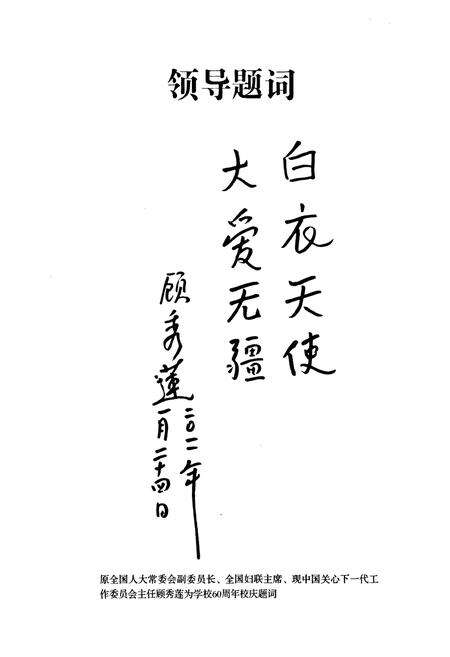 领导题词
白衣天使
大爱无疆
顾秀莲
二〇一一年
一月二十四日
原全国人大常委会副委员长、全国妇联主席、现中国关心下一代工
作委员会主任顾秀莲为学校60周年校庆题词